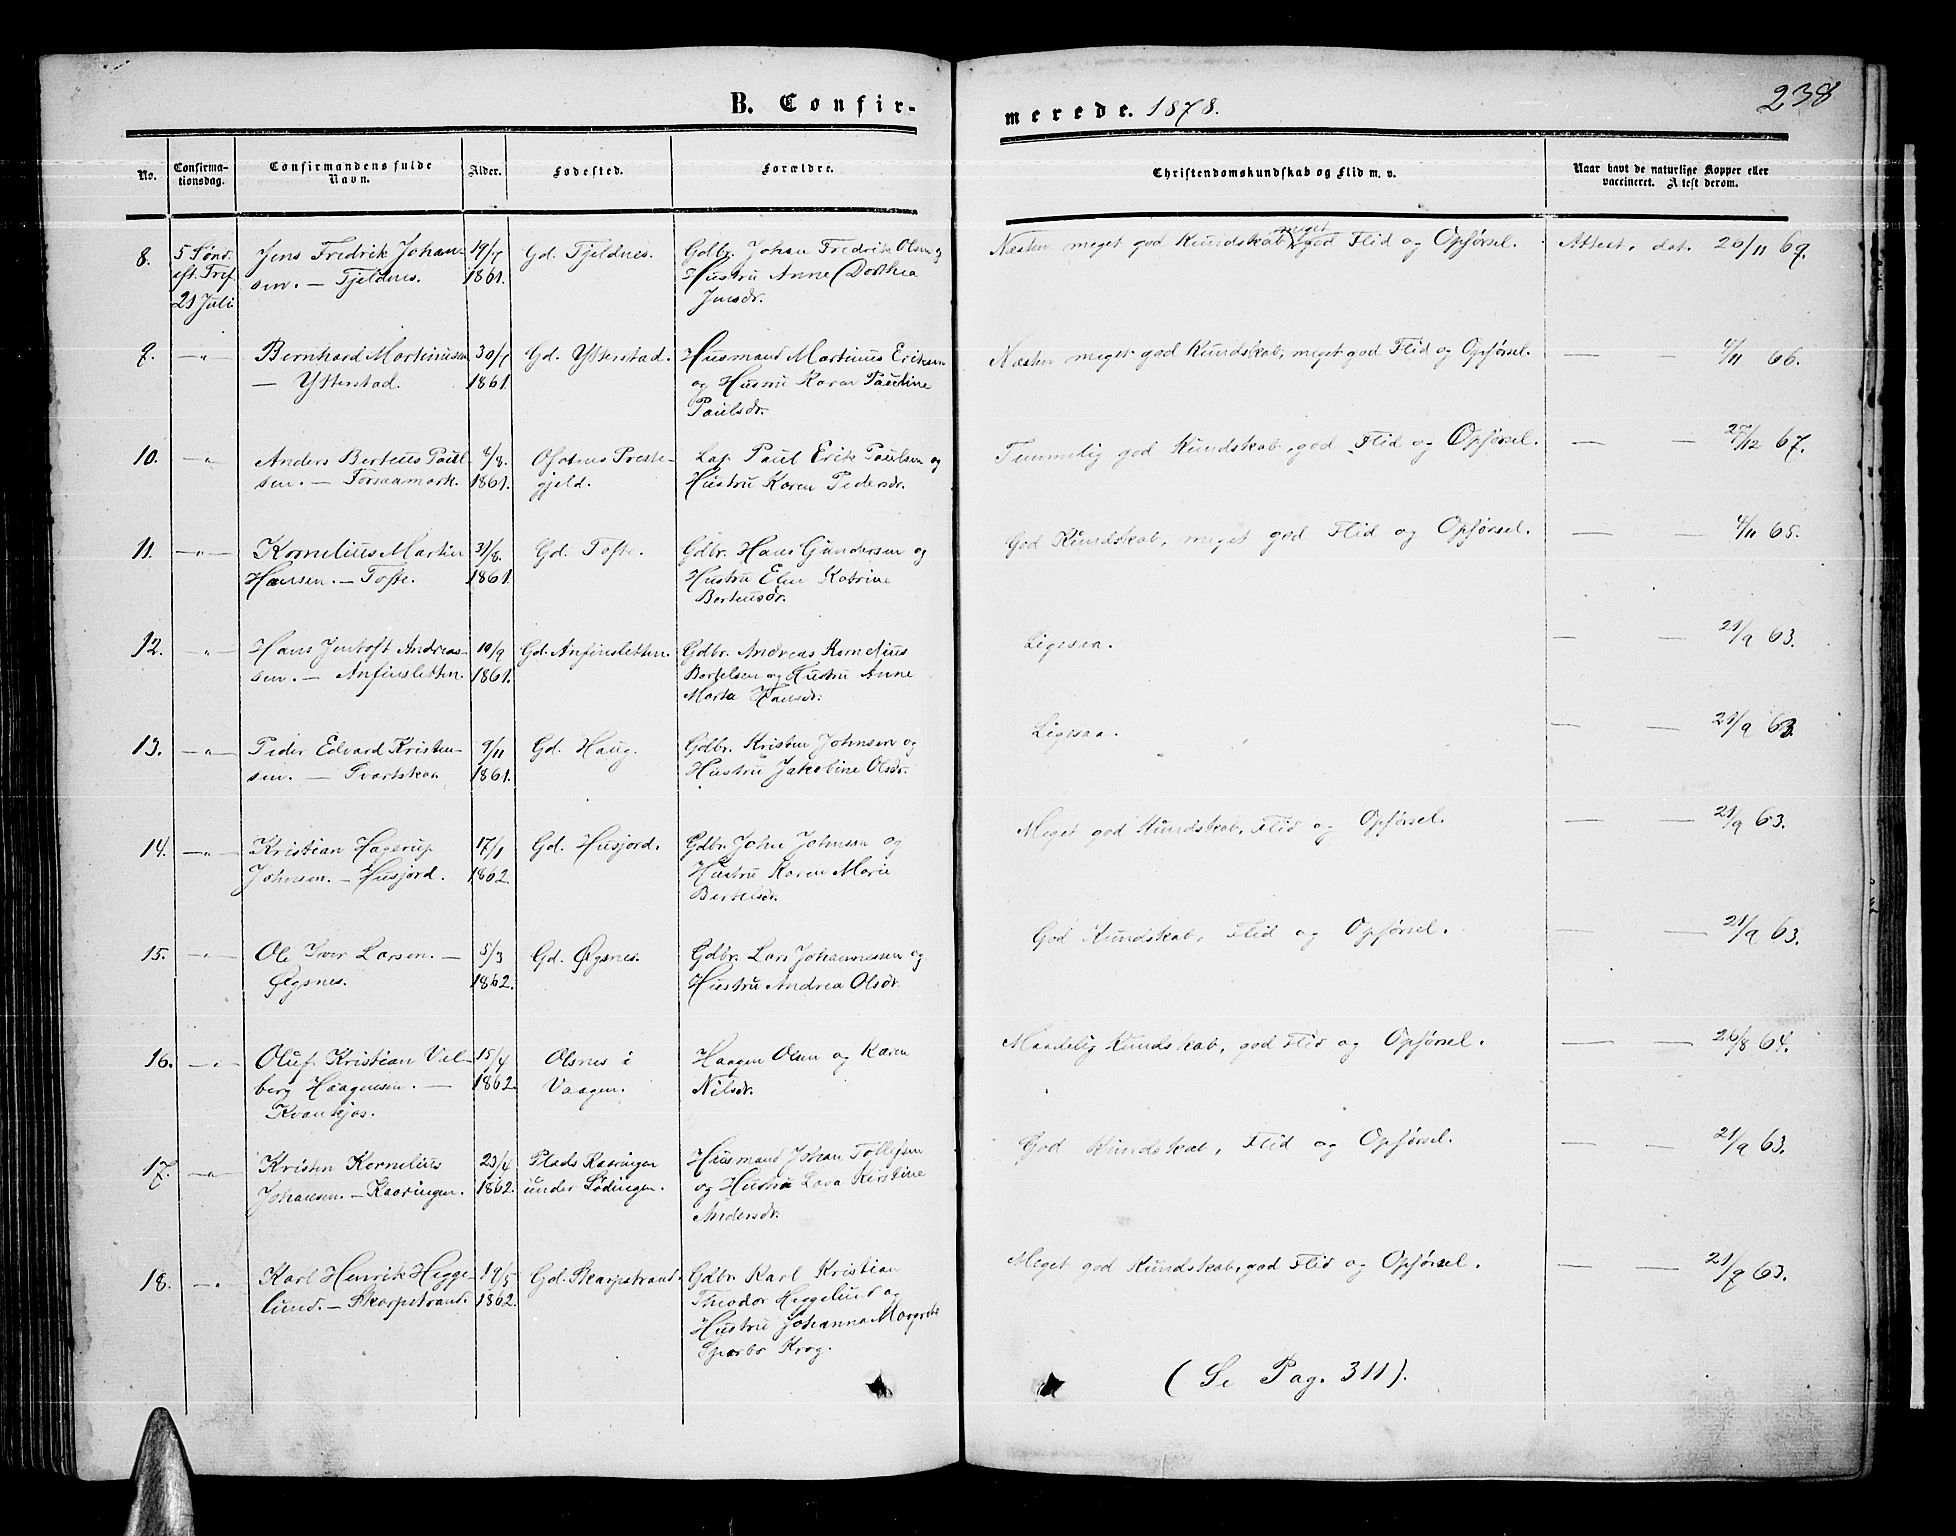 B. Confir-
merede. 1878.
238
No.
Confirma-
tionsdag.
Confirmandens fulde
Navn.
Alder.
Fødested.
Forældre.
Christendomskundskab og Flid m. v.
Naar havt de naturlige Kopper eller
vaccineret. Attest derom.
8. 5 Sønd. Jens Fredrik Johan- 19/7 Gd. Tjeldnes. Gdbr. Johan Fredrik Olsen og Næsten meget god Kundskab, meget god Flid og Opførsel. Attest, dat. 20/11 69.
eft. Tref. sen. — Tjeldnes. 1861. Hustru Anne Dorthea
21 Juli Jensdr.
9. —„— Bernhard Martinussen 30/7 Gd. Ytterstad. Husmand Martinus Eriksen Næsten meget god Kundskab, meget god Flid og Opførsel. — — 4/11 66.
— Ytterstad. 1861. og Hustru Karen Pauline
Paulsdr.
10. —„— Anders Berteus Paul- 4/8. Ofotens Præste- Lap Paul Erik Paulsen og Temmelig god Kundskab, god Flid og Opførsel. — — 27/12 67.
sen. — Forsaamark. 1861. gjeld. Hustru Karen Pedersdr.
11. —„— Kornelius Martin 31/8. Gd. Tofte. Gdbr. Hans Gundersen og God Kundskab, meget god Flid og Opførsel. — — 4/11 65.
Hansen. — Tofte. 1861. Hustru Elen Katrine
Berteusdr.
12. —„— Hans Jentoft Andreas- 10/9 Gd. Anfinsletten. Gdbr. Andreas Kornelius Ligesaa. — — 21/9 63.
sen. — Anfinsletten. 1861. Bertelsen og Hustru Anne
Marta Hansdr.
13. —„— Peder Edvard Kristen- 9/11 Gd. Haug. Gdbr. Kristen Johnsen og Ligesaa. — — 21/9 63.
sen. — 1861. Hustru Jakobine Olsdr.
14. —„— Kristian Hagerup 17/1 Gd. Husjord. Gdbr. John Johnsen og Meget god Kundskab, Flid og Opførsel. — — 21/9 63.
Johnsen. — Husjord. 1862. Hustru Karen Marie
Bertelsdr.
15. —„— Ole Iver Larsen. — 5/3 Gd. Øgsnes. Gdbr. Lars Johannessen og God Kundskab, Flid og Opførsel. — — 21/9 63.
Øgsnes. 1862. Hustru Andrea Olsdr.
16. —„— Oluf Kristian Vel- 15/4 Olsnes i Haagen Olsen og Karen Maadelig Kundskab, god Flid og Opførsel. — — 26/8 64.
berg Haagensen. — 1862. Vaagen. Nilsdr.
17. —„— Kristen Kornelius 23/4 Plads Kaaringen Husmand Johan Tollefsen God Kundskab, Flid og Opførsel. — — 21/9 63.
Johansen. — Kaaringen. 1862. under Lødingen. og Hustru Lava Kirstine
Andersdr.
18. —„— Karl Henrik Hegge- 19/5 Gd. Skarpstrand. Gdbr. Karl Kristian Meget god Kundskab, god Flid og Opførsel. — — 21/9 63.
lund. — Skarpstrand. 1862. Theodor Heggelund og
Hustru Johanna Margrete
Sparbo Krog.
(Se Pag. 311).